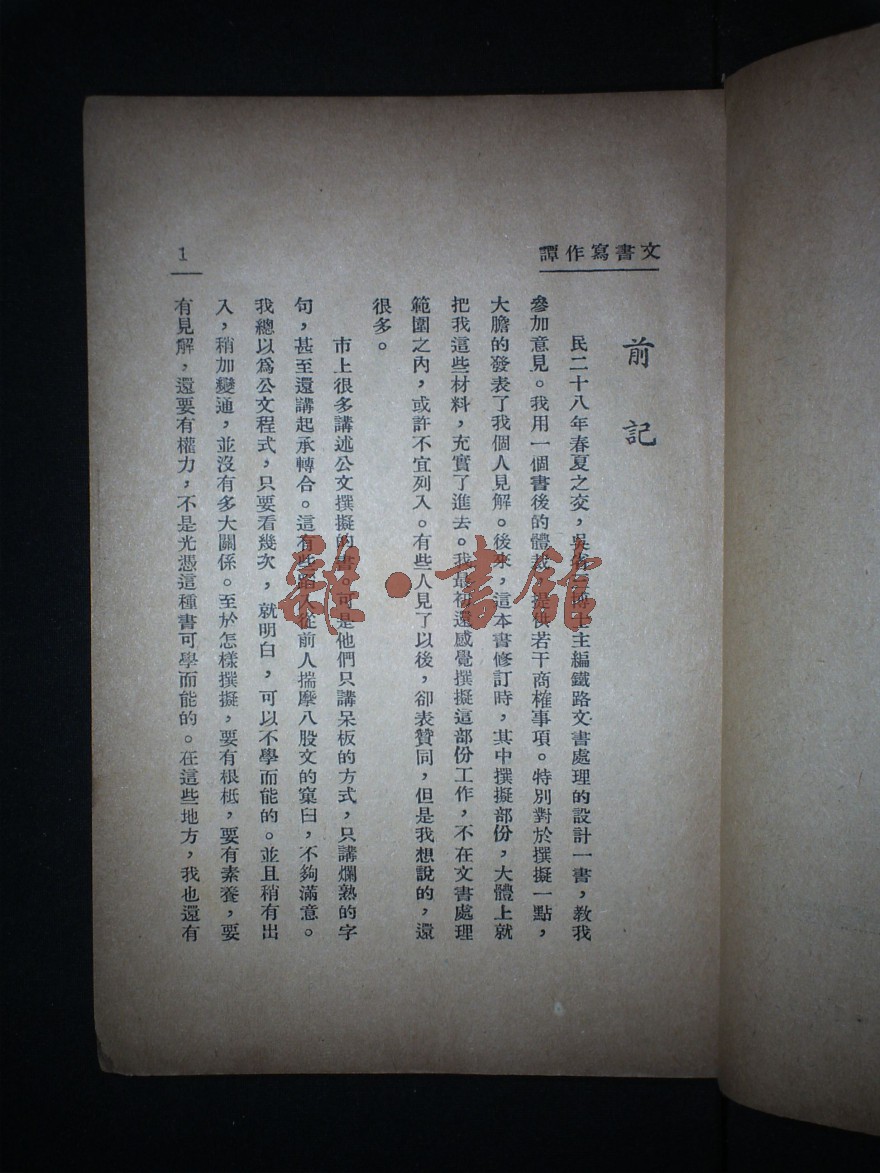 文書寫作譚
1
前記
民二十八年春夏之交，吳
博士主編鐵路文書處理的設計一書，教我
參加意見。我用一個書後的體裁，提供若干商榷事項。特別對於撰擬一點，
大膽的發表了我個人見解。後來，這本書修訂時，其中撰擬部份，大體上就
把我這些材料，充實了進去。我最初還感覺撰擬這部份工作，不在文書處理
範圍之內，或許不宜列入。有些人見了以後，卻表贊同，但是我想說的，還
很多。
市上很多講述公文撰擬的書。可是他們只講呆板的方式，只講爛熟的字
句，甚至還講起承轉合。這有些踏入從前人揣摩八股文的窠臼，不夠滿意。
我總以爲公文程式，只要看幾次，就明白，可以不學而能的。並且稍有出
入，稍加變通，並沒有多大關係。至於怎樣撰擬，要有根柢，要有素養，要
有見解，還要有權力，不是光憑這種書可學而能的。在這些地方，我也還有
雜·書館